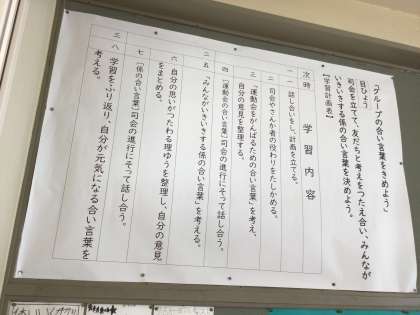 「グループの合い言葉をきめよう」
目ひょう
司会を立てて、友だちと考えをつたえ合い、みんなが
いきいきする係の合い言葉を決めよう。
【学習計画表】
次 時 学習内容
一 一 話し合いをし、計画を立てる。
二 司会やさんか者の役わりをたしかめる。
三 「運動会をがんばるための合い言葉」を考え、
自分の意見を整理する。
四 〔運動会の合い言葉〕司会の進行にそって話し合う。
二 五 「みんながいきいきする係の合い言葉」を考える。
六 自分の思いがつたわる理ゆうを整理し、自分の意見
をまとめる。
七 〔係の合い言葉〕司会の進行にそって話し合う。
三 八 学習をふり返り、自分が元気になる合い言葉を
考える。